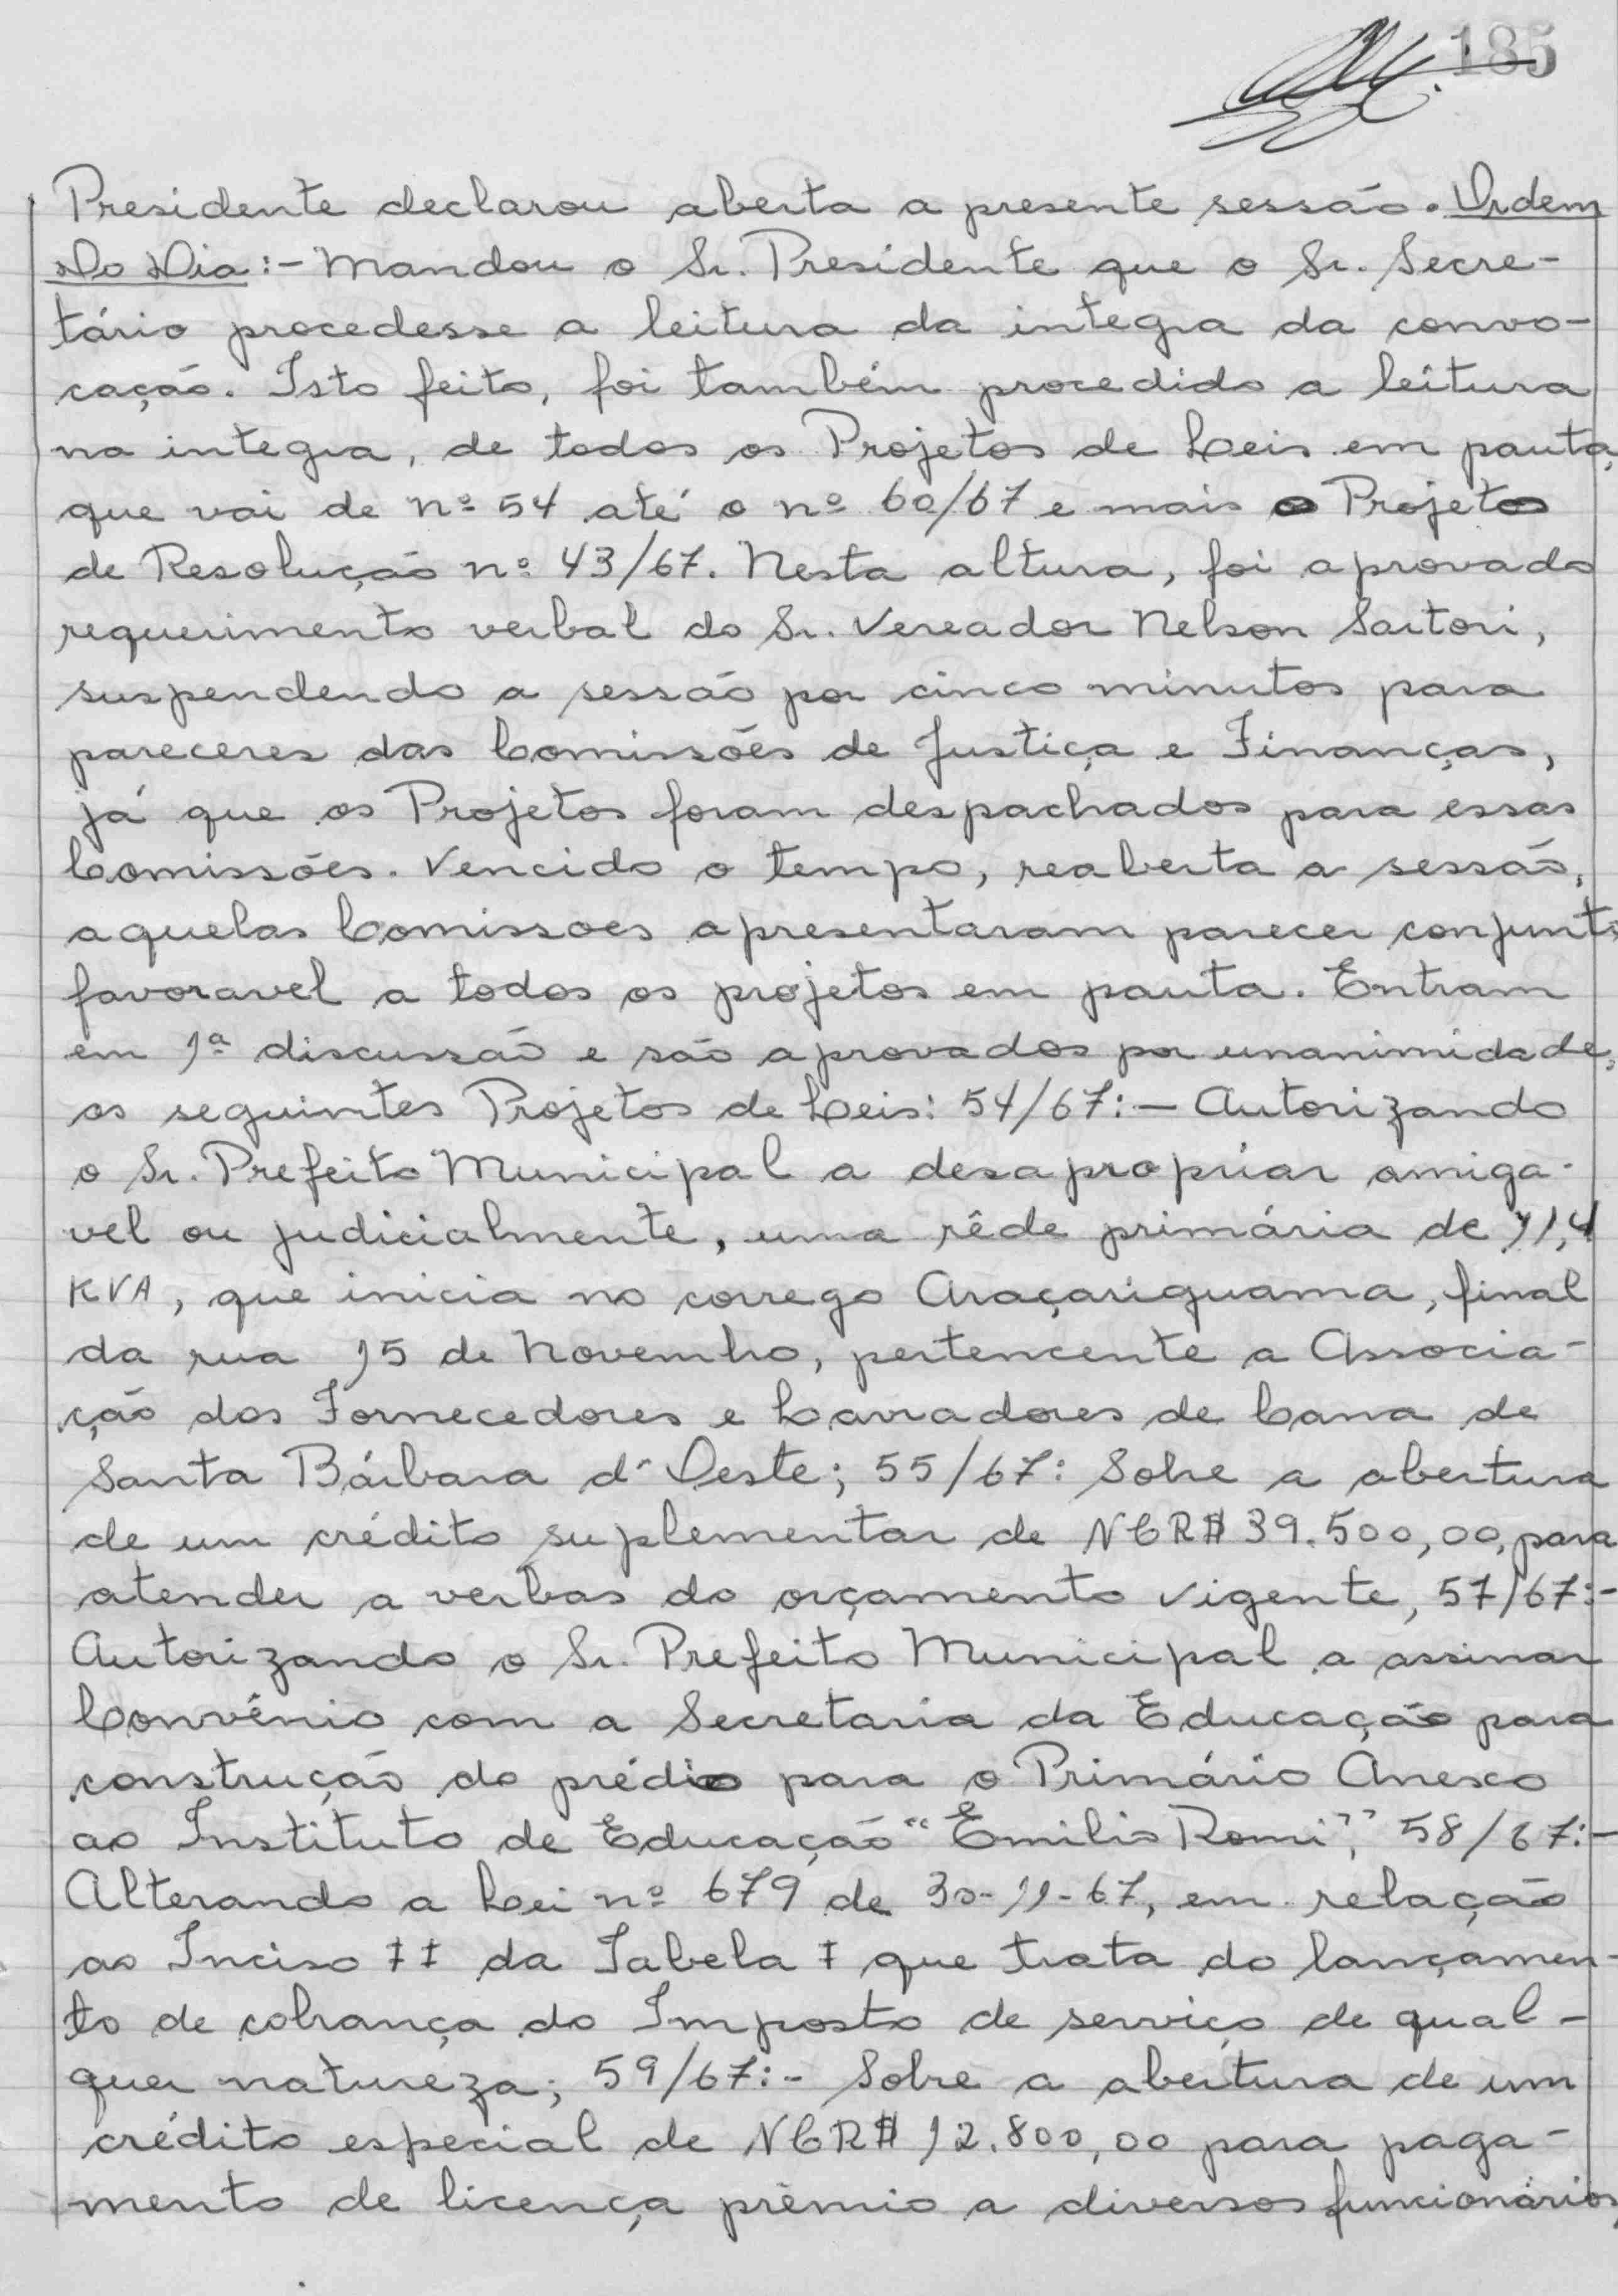 185
Presidente declarou aberta a presente sessão. Ordem
Do Dia:- Mandou o Sr. Presidente que o Sr. Secre-
tário procedesse a leitura da integra da convo-
cação. Isto feito, foi também procedido a leitura
na integra, de todos os Projetos de Leis em pauta,
que vai de nº 54 até o nº 60/67 e mais o Projeto
de Resolução nº 43/67. Nesta altura, foi aprovado
requerimento verbal do Sr. Vereador Nelson Sartori,
suspendendo a sessão por cinco minutos para
pareceres das Comissões de Justiça e Finanças,
já que os Projetos foram despachados para essas
Comissões. Vencido o tempo, reaberta a sessão,
aquelas Comissoes apresentaram parecer conjunto
favoravel a todos os projetos em pauta. Entram
em 1ª discussão e são aprovados por unanimidade,
os seguintes Projetos de Leis: 54/67:- Autorizando
o Sr. Prefeito Municipal a desapropriar amiga-
vel ou judicialmente, uma rêde primária de 11,4
KVA, que inicia no corrego Araçariguama, final
da rua 15 de Novembro, pertencente a Associa-
ção dos Fornecedores e Lavradores de Cana de
Santa Bárbara d'Oeste; 55/67: Sobre a abertura
de um crédito suplementar de NCR$ 39.500,00, para
atender a verbas do orçamento vigente, 57/67:-
Autorizando o Sr. Prefeito Municipal a assinar
Convênio com a Secretaria da Educação para
construção do prédio para o Primário Anexo
ao Instituto de Educação "Emilio Romi", 58/67:-
Alterando a Lei nº 679 de 30-11-67, em relação
ao Inciso II da Tabela I que trata do lançamen-
to de cobrança do Imposto de serviço de qual-
quer natureza; 59/67:- Sobre a abertura de um
crédito especial de NCR$ 12.800,00 para paga-
mento de licença prêmio a diversos funcionários,